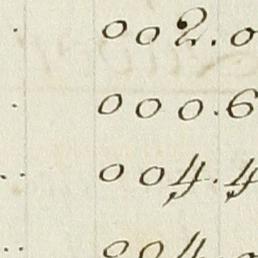 . 002.0
. 000.6
.. 004.4
.. 004